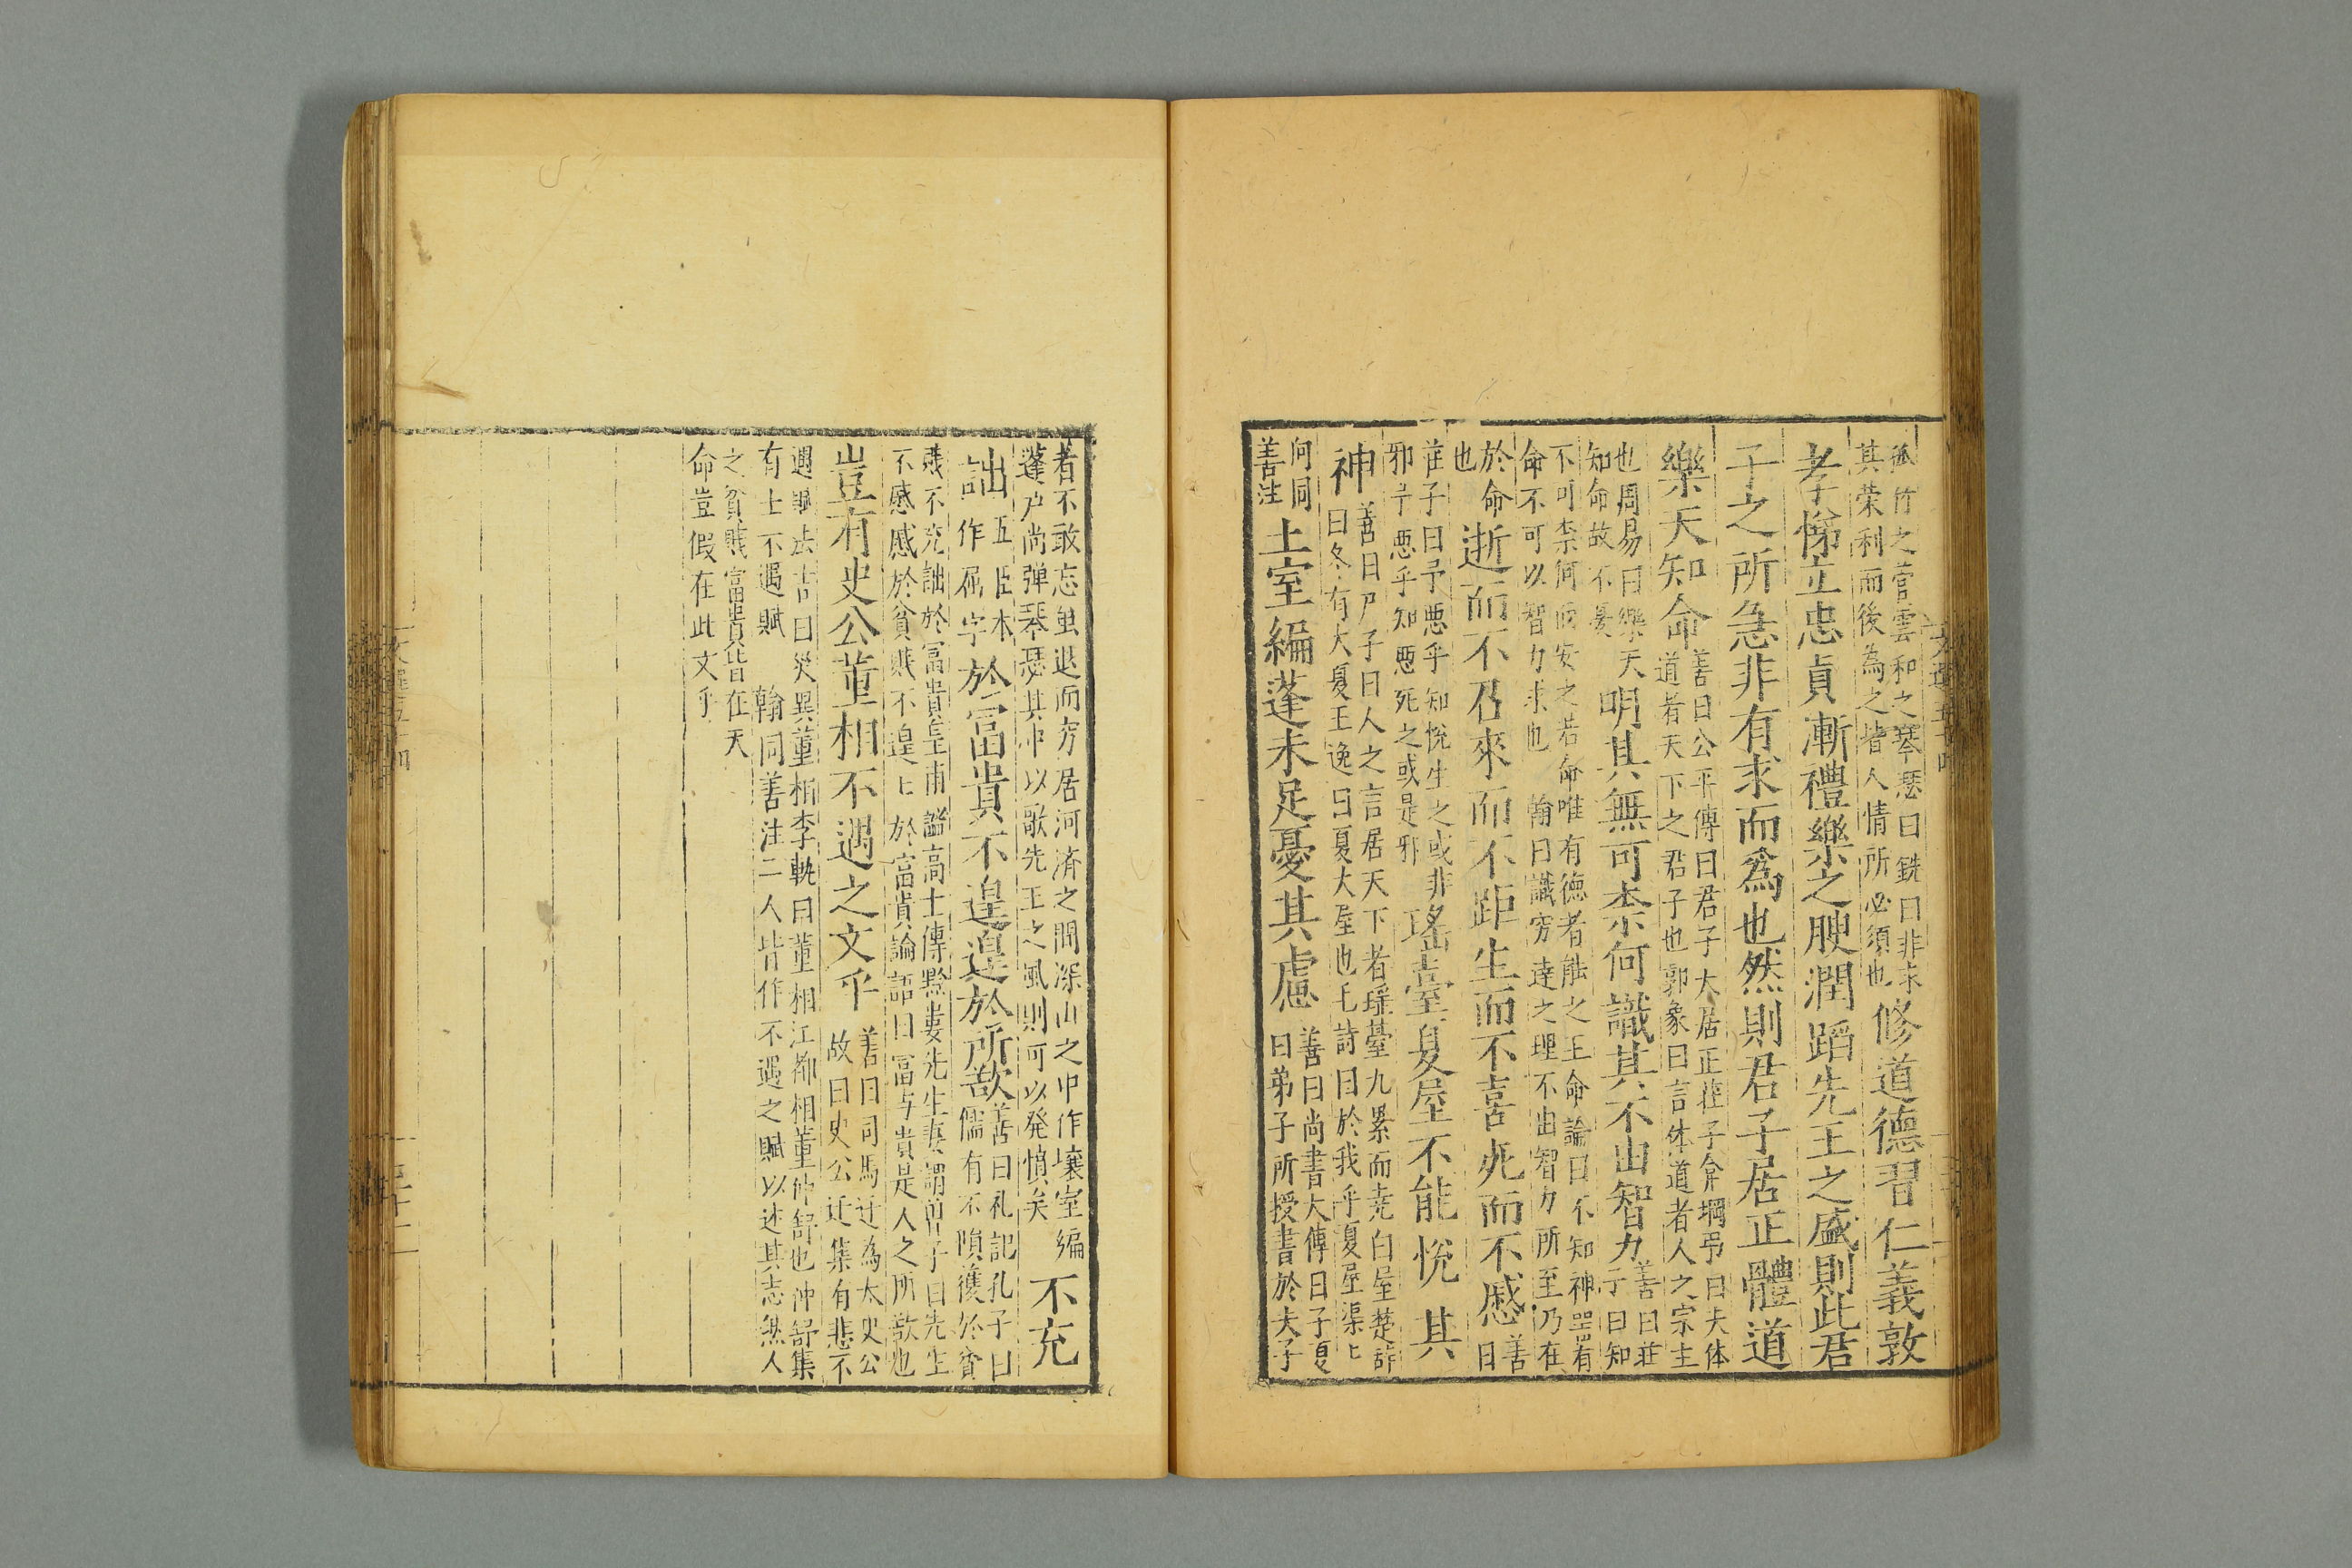 孤竹之管雲和之琴瑟曰銑曰非求
其榮利而後為之皆人情所必須也
修道德習仁義敦
孝悌立忠貞漸禮樂之腴潤蹈先王之盛則此君
子之所急非有求而為也然則君子居正體道
樂天知命
善曰公羊傳曰君子大居正莊子弇堈弔曰夫体
道者天下之君子也郭象曰言体道者人之宗主
也周易曰樂天
知命故不憂
明其無可柰何識其不由智力
善曰莊
子曰知
不可柰何而安之若命唯有德者能之王命論曰不知神器有
命不可以智力求也 翰曰識窮達之理不由智力所至乃在
於命
也
逝而不召來而不距生而不喜死而不慼
善
曰
莊子曰予惡乎知悅生之或非
邪予惡乎知惡死之或是邪
瑤臺夏屋不能悅其
神
善曰尸子曰人之言居天下者瑤臺九累而堯白屋楚辞
曰冬有大夏王逸曰夏大屋也毛詩曰於我乎夏屋渠匕
向同
善注
土室編蓬未足憂其慮
善曰尚書大傳曰子夏
曰弟子所授書於夫子
者不敢忘虽退而窮居河済之間深山之中作壤室編
蓬户尚弹琴瑟其中以歌先王之風則可以発憤矣
不充
詘
五臣本
作屈字
於富貴不遑遑於所欲
善曰礼記孔子曰
儒有不隕穫於貧
賎不充詘於冨貴皇甫謐高士傳黔婁先生妻謂曾子曰先生
不慼慼於貧賎不遑匕於富貴論語曰冨与貴是人之所欲也
豈有史公董相不遇之文乎
善曰司馬迁為太史公
故曰史公迁集有悲不
遇賦法言曰災異董相李軌曰董相江都相董仲舒也仲舒集
有士不遇賦 翰同善注二人皆作不遇之賦以述其志然人
之貧賎富貴皆在天
命豈假在此文乎